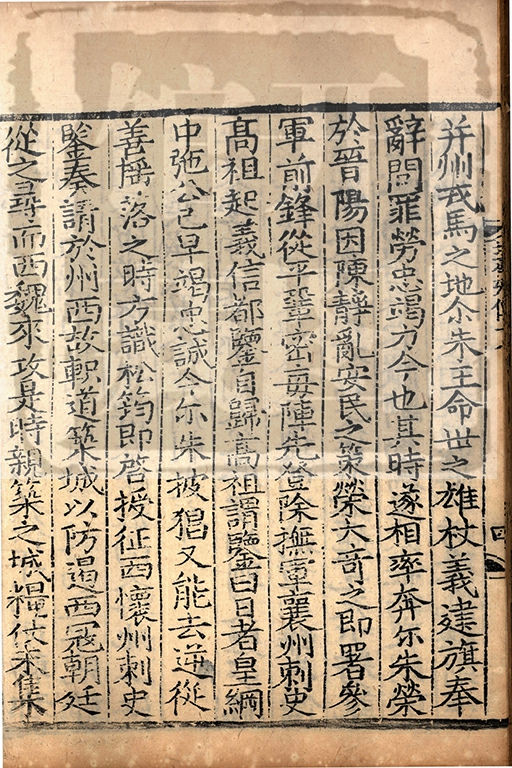 并州戎馬之地尒朱王命世之雄杖義建旗奉
辭問罪勞忠竭力今也其時遂相率奔尔朱榮
於晉陽因陳靜亂安民之策榮大竒之即署參
軍前鋒從平鞏密每陣先登除撫軍襄州刺史
髙祖起義信都鑒自歸髙祖謂鑒曰日者皇綱
中弛公已早竭忠誠今尔朱披猖又能去逆從
善揺落之時方識松筠即啓授征西懷州刺史
鑒奏請於州西故軹道築城以防遏西冦朝廷
從之尋而西魏來攻是時親築之城糧仗未集
四